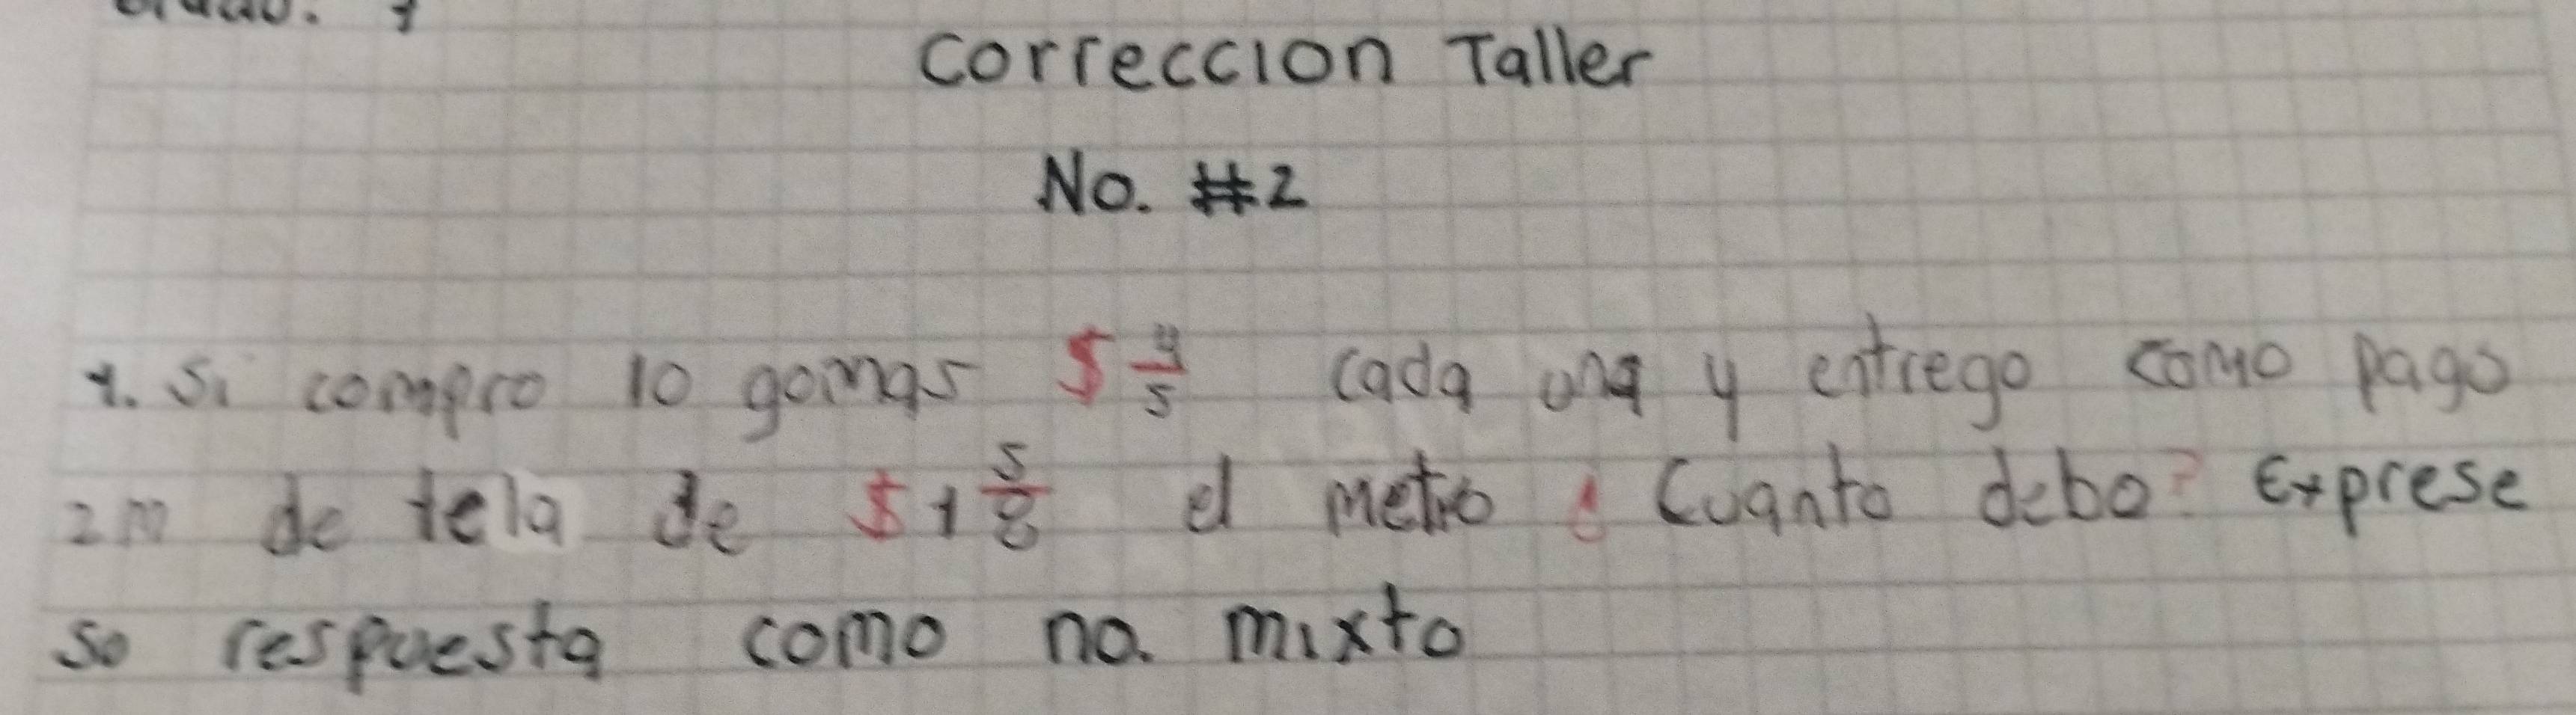 Correccion Taller
No. #2
1. Si compro 10 gomas $ 4/5 cada una y entrego como pago
2m de tela de $ 1 5/8 el metro ¿Cuanto debo? Exprese
so respuesta como no. mixto